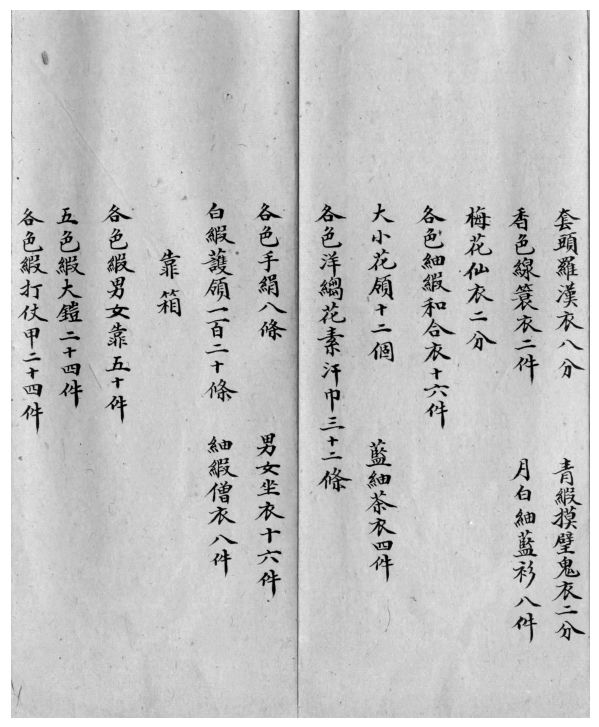 套頭羅漢衣八分　青緞摸壁鬼衣二分
香色線簑衣二件　月白紬藍衫八件
梅花仙衣二分
各色紬緞和合衣十六件
大小花領十二個　藍紬茶衣四件
各色洋縐花素汗巾三十二條
各色手絹八條　男女坐衣十六件
白緞護領一百二十條　紬緞僧衣八件
靠箱
各色緞男女靠五十件
五色緞大鎧二十四件
各色緞打仗甲二十四件